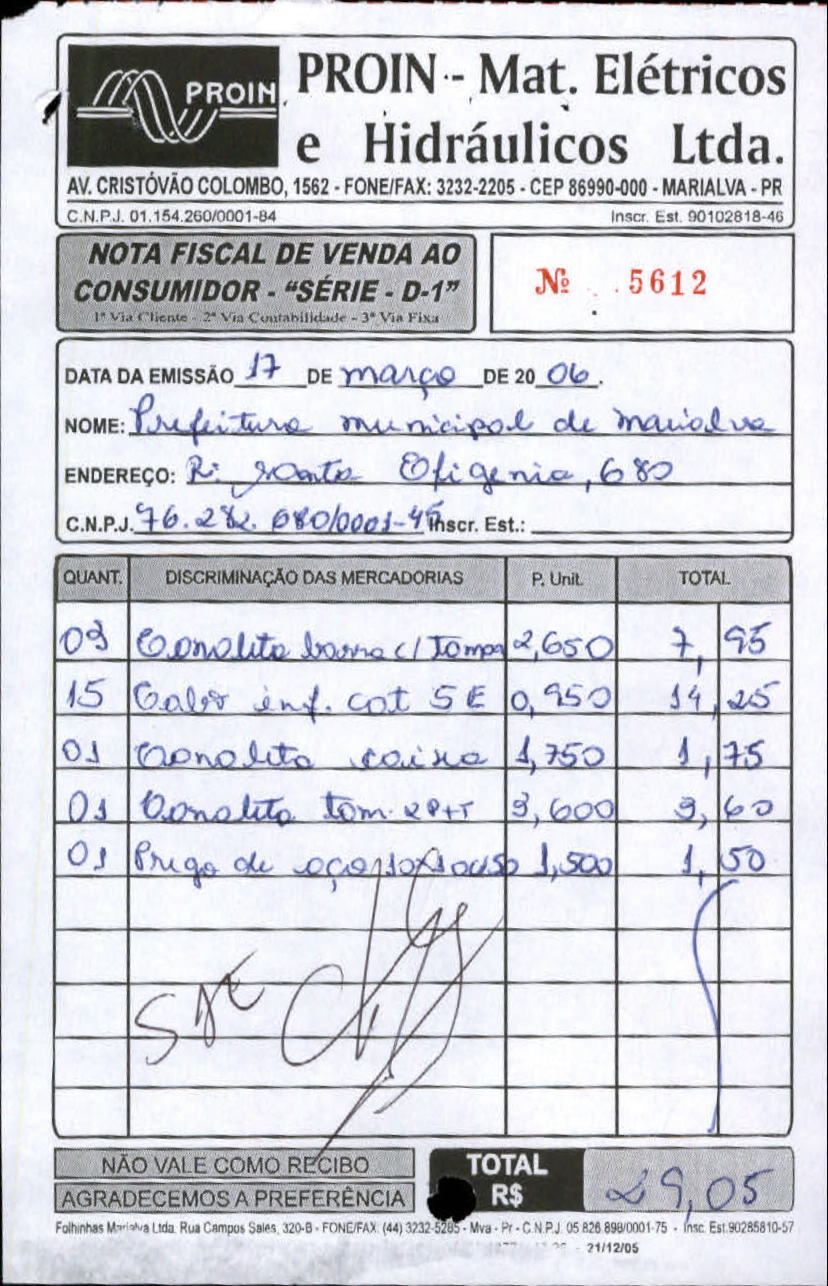 PROIN
PROIN - Mat. Elétricos
e Hidráulicos Ltda.
AV. CRISTÓVÃO COLOMBO, 1562 - FONE/FAX: 3232-2205 - CEP 86990-000 - MARIALVA - PR
C.N.P.J. 01.154.260/0001-84 Inscr. Est. 90102818-46
NOTA FISCAL DE VENDA AO
CONSUMIDOR - “SÉRIE - D-1”
1ª Via Cliente - 2ª Via Contabilidade - 3ª Via Fixa
Nº 5612
DATA DA EMISSÃO 17 DE março DE 20 06.
NOME: Prefeitura municipal de marialva
ENDEREÇO: R: Santa Efigenia, 680
C.N.P.J. 76.282.680/0001-45 Inscr. Est.:
QUANT. DISCRIMINAÇÃO DAS MERCADORIAS P. Unit. TOTAL
03 Conolita barra c/ tampa 2,650 7,95
15 Cabo inf. cat 5E 0,950 14,25
01 Conolita caixa 1,750 1,75
01 Conolita tom. 2P+T 3,600 3,60
01 Prego de aço 10x10 1,500 1,50
NÃO VALE COMO RECIBO
AGRADECEMOS A PREFERÊNCIA
TOTAL R$ 29,05
Folhinhas Marialva Ltda. Rua Campos Sales, 320-B - FONE/FAX. (44) 3232-5285 - Mva - Pr - C.N.P.J. 05.826.899/0001-75 - Insc. Est.90285810-57
21/12/05